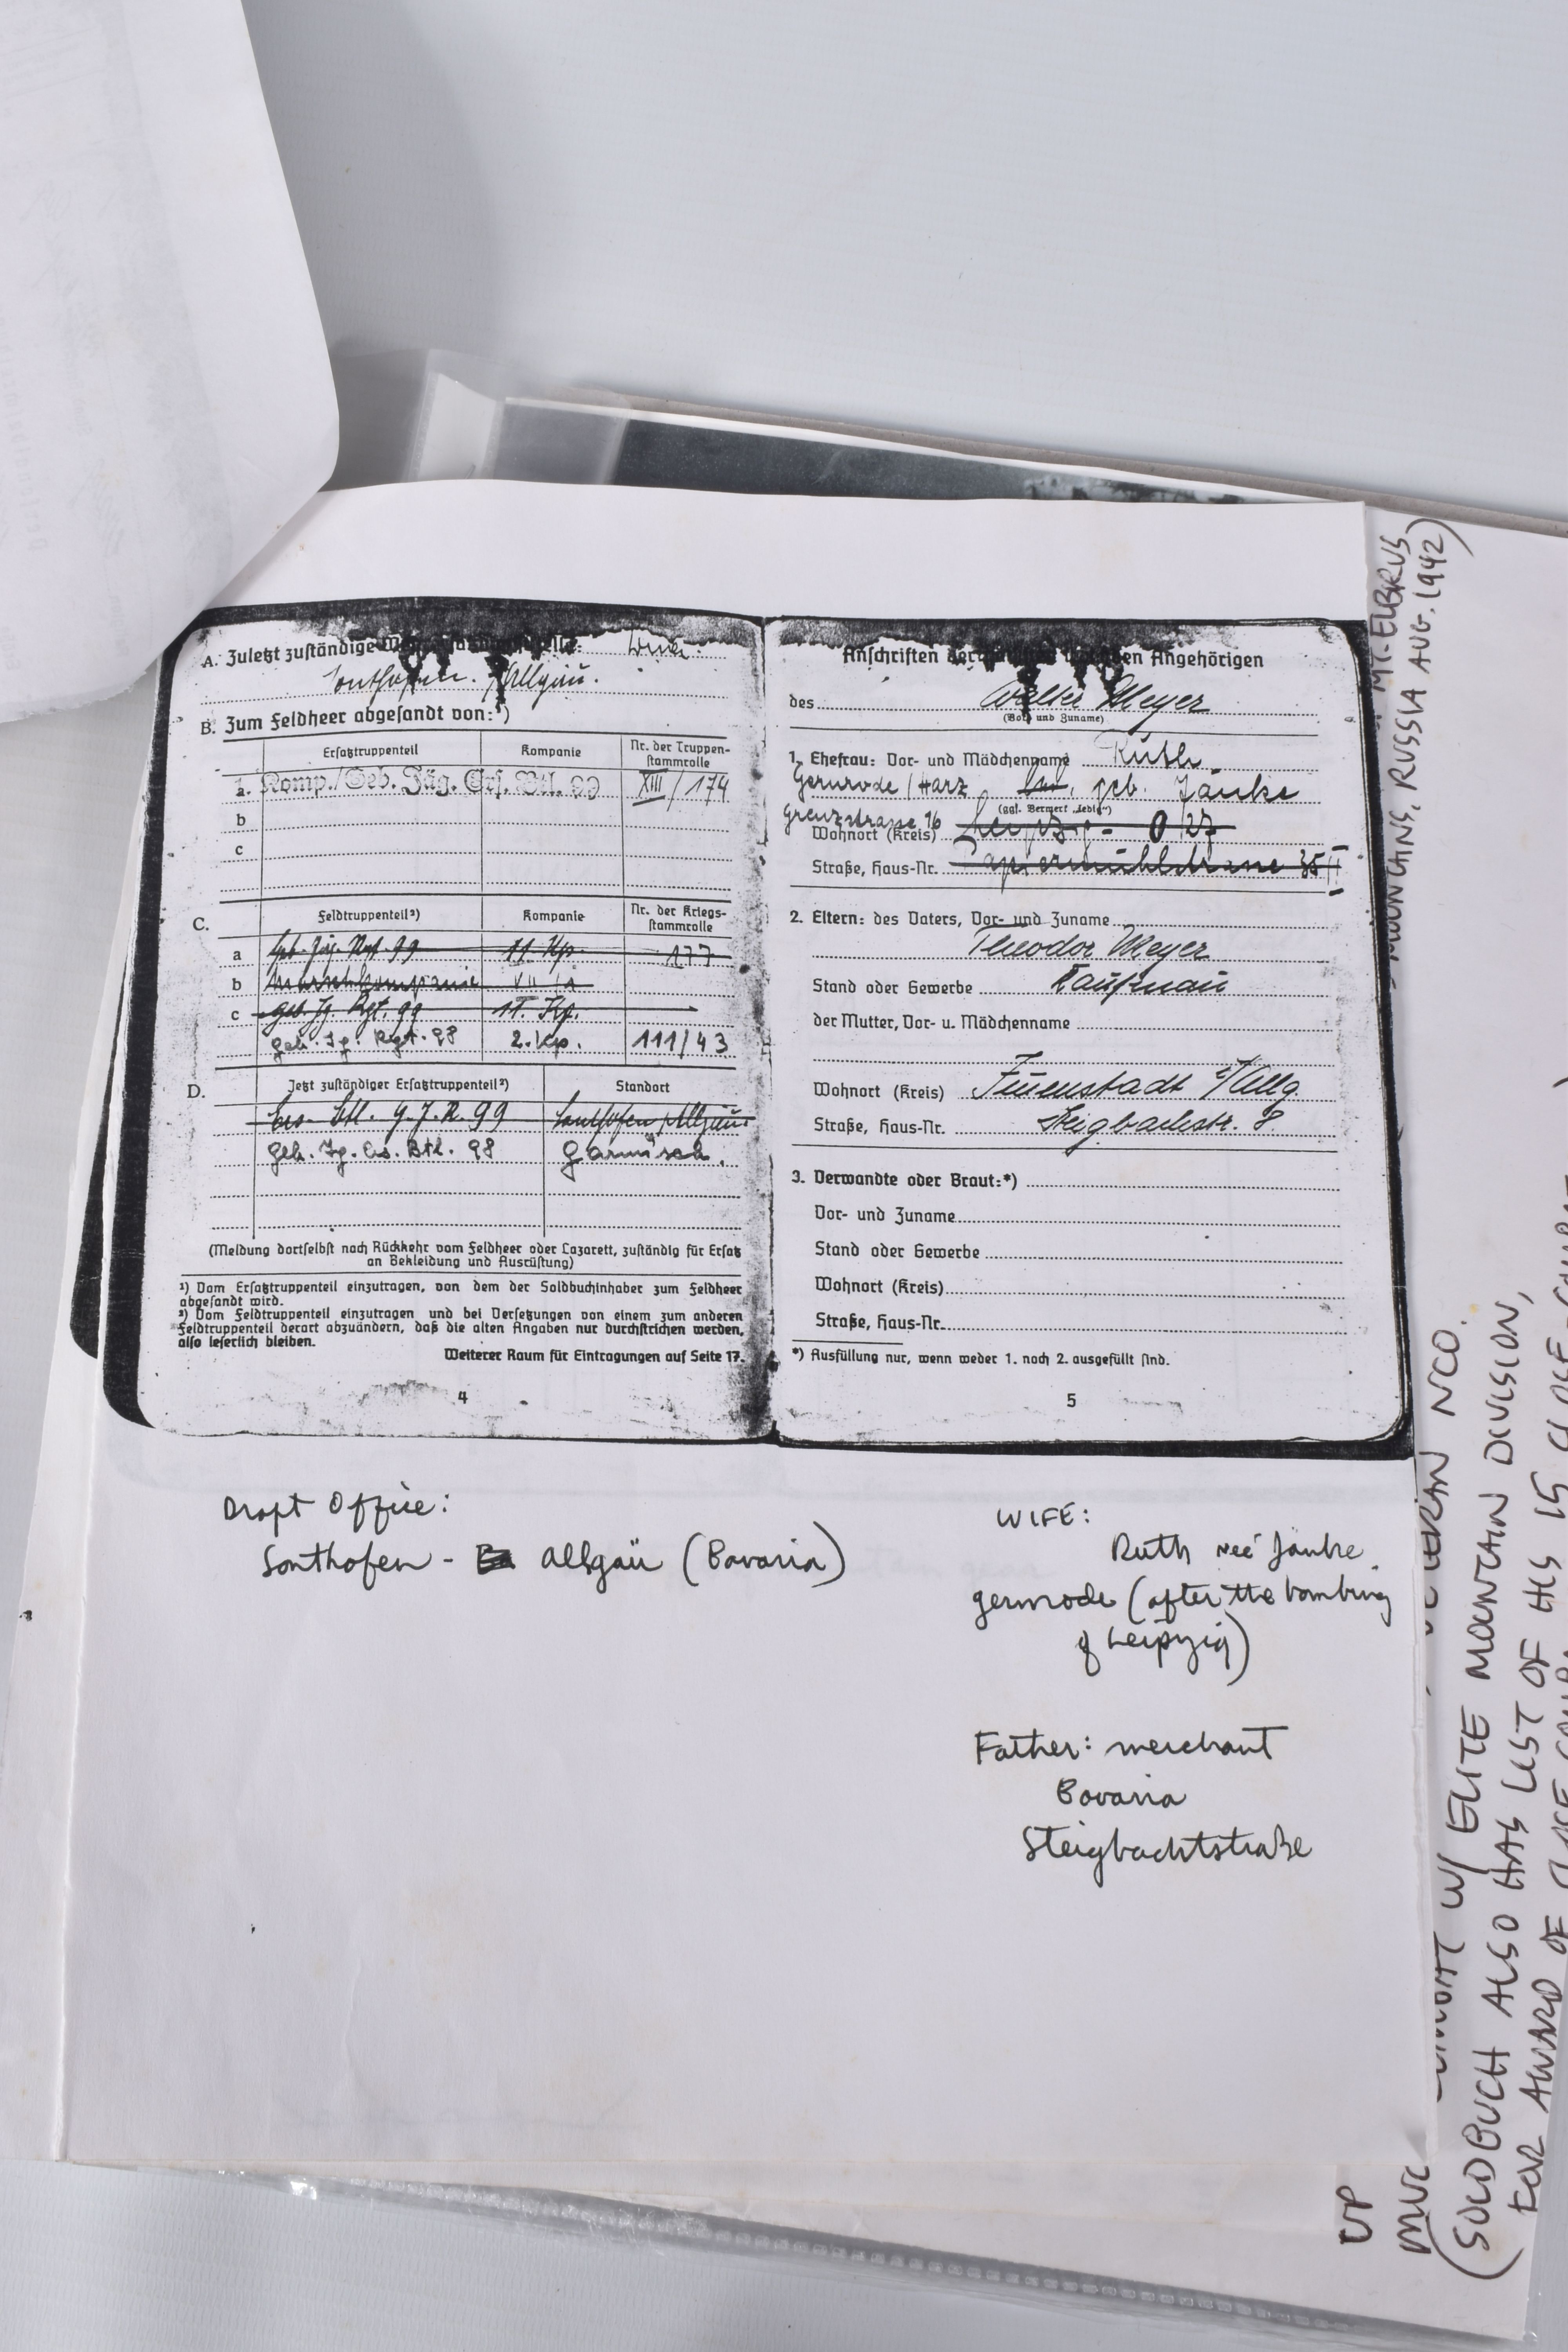 A. Zuletzt zuständige
Sonthofen /Allgäu.
B. Zum Feldheer abgesandt von:¹)
Ersatztruppenteil Kompanie Nr. der Truppen-
stammrolle
Komp./Geb. Jäg. Ers. Btl. XIII/174
b
c
C. Feldtruppenteil²) Kompanie Nr. der Kriegs-
stammrolle
a Geb. Jäg. Rgt. 99 11. Kp. 177
b Marschkompanie
c Geb. Jg. Rgt. 99 11. Kp.
Geb. Jg. Regt. 98 2. Kp. 111/43
D. Jetzt zuständiger Ersatztruppenteil²) Standort
Ers. Btl. G. J. R. 99 Sonthofen/Allgäu
Geb. Jg. Ers. Btl. 98 Garmisch.
(Meldung dortselbst nach Rückkehr vom Feldheer oder Lazarett, zuständig für Ersatz
an Bekleidung und Ausrüstung)
¹) Vom Ersatztruppenteil einzutragen, von dem der Soldbuchinhaber zum Feldheer
abgesandt wird.
²) Vom Feldtruppenteil einzutragen und bei Versetzungen von einem zum anderen
Feldtruppenteil derart abzuändern, daß die alten Angaben nur durchstrichen werden,
also leserlich bleiben.
Weiterer Raum für Eintragungen auf Seite 17.
4
Anschriften der den Angehörigen
des Walter Meyer
(Vor- und Zuname)
1. Ehefrau: Vor- und Mädchenname Ruth
Gernrode/Harz geb. Jänke
(ggf. Vermerk „ledig")
Grenzstrasse 16
Wohnort (Kreis) Leipzig - O 27
Straße, Haus-Nr. Papiermühlstrasse 35 II
2. Eltern: des Vaters, Vor- und Zuname
Theodor Meyer
Stand oder Gewerbe Kaufmann
der Mutter, Vor- u. Mädchenname
Wohnort (Kreis) i/Allg.
Straße, Haus-Nr. Steigbachstr. 8
3. Verwandte oder Braut:*)
Vor- und Zuname
Stand oder Gewerbe
Wohnort (Kreis)
Straße, Haus-Nr.
*) Ausfüllung nur, wenn weder 1. noch 2. ausgefüllt sind.
5
Draft Office:
Sonthofen - Allgäu (Bavaria)
WIFE:
Ruth neé Jänke
gernrode (after the bombing
of Leipzig)
Father: merchant
Bavaria
Steigbachtstraße
MT. ELBRUS
MOUNTAINS, RUSSIA AUG. 1942)
UP
NCO.
W/ ELITE MOUNTAIN DIVISION,
(SOLDBUCH ALSO HAS LIST OF HIS 15 CLOSE-COMBAT
FOR AWARD OF CLOSE COMBAT